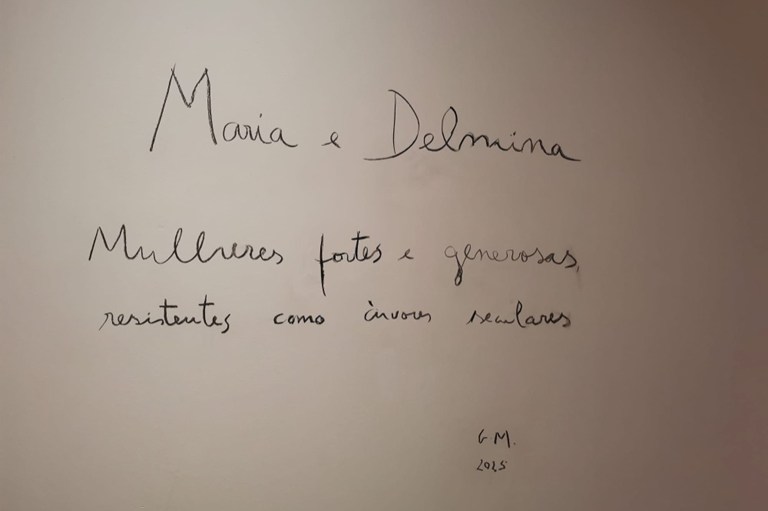 Maria e Delmina
Mulheres fortes e generosas,
resistentes como árvores seculares
G M.
2025